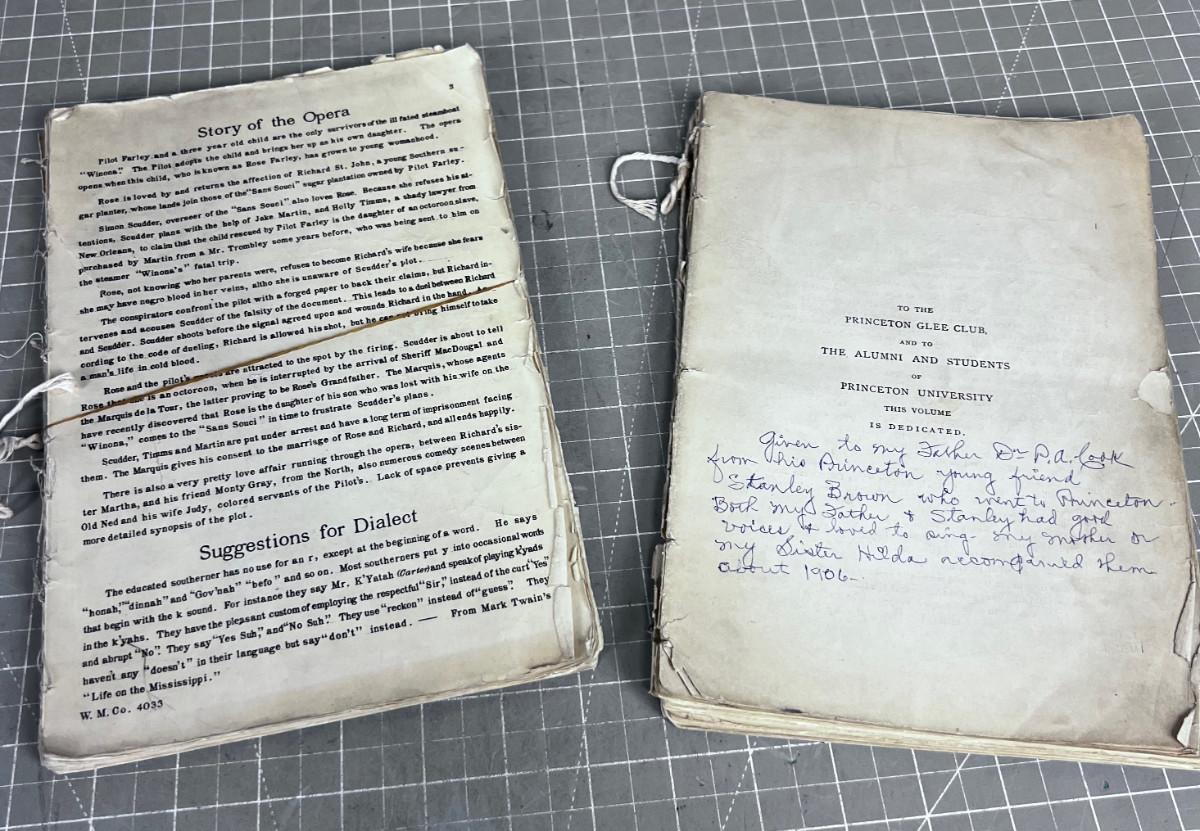 3
Story of the Opera
Pilot Farley and a three year old child are the only survivors of the ill fated steamboat
"Winona." The Pilot adopts the child and brings her up as his own daughter. The opera
opens when this child, who is known as Rose Farley, has grown to young womanhood.
Rose is loved by and returns the affection of Richard St. John, a young Southern su-
gar planter, whose lands join those of the "Sans Souci" sugar plantation owned by Pilot Farley.
Simon Scudder, overseer of the "Sans Souci" also loves Rose. Because she refuses his at-
tentions, Scudder plans with the help of Jake Martin, and Holly Timms, a shady lawyer from
New Orleans, to claim that the child rescued by Pilot Farley is the daughter of an octoroon slave,
purchased by Martin from a Mr. Trombley some years before, who was being sent to him on
the steamer "Winona's" fatal trip.
Rose, not knowing who her parents were, refuses to become Richard's wife because she fears
she may have negro blood in her veins, altho she is unaware of Scudder's plot.
The conspirators confront the pilot with a forged paper to back their claims, but Richard in-
tervenes and accuses Scudder of the falsity of the document. This leads to a duel between Richard
and Scudder. Scudder shoots before the signal agreed upon and wounds Richard in the hand. Ac-
cording to the code of dueling, Richard is allowed his shot, but he can not bring himself to take
a man's life in cold blood.
Rose and the pilot's are attracted to the spot by the firing. Scudder is about to tell
Rose that she is an octoroon, when he is interrupted by the arrival of Sheriff MacDougal and
the Marquis de la Tour, the latter proving to be Rose's Grandfather. The Marquis, whose agents
have recently discovered that Rose is the daughter of his son who was lost with his wife on the
"Winona," comes to the "Sans Souci" in time to frustrate Scudder's plans.
Scudder, Timms and Martin are put under arrest and have a long term of imprisonment facing
them. The Marquis gives his consent to the marriage of Rose and Richard, and all ends happily.
There is also a very pretty love affair running through the opera, between Richard's sis-
ter Martha, and his friend Monty Gray, from the North, also numerous comedy scenes between
Old Ned and his wife Judy, colored servants of the Pilot's. Lack of space prevents giving a
more detailed synopsis of the plot.
Suggestions for Dialect
The educated southerner has no use for an r, except at the beginning of a word. He says
"honah," "dinnah" and "Gov'nah" "befo" and so on. Most southerners put y into occasional words
that begin with the k sound. For instance they say Mr. K'Yatah (Carter) and speak of playing k'yads
in the k'yahs. They have the pleasant custom of employing the respectful "Sir," instead of the curt "Yes"
and abrupt "No". They say "Yes Suh," and "No Suh." They use "reckon" instead of "guess". They
haven't any "doesn't" in their language but say "don't" instead. — From Mark Twain's
"Life on the Mississippi."
W. M. Co. 4033
TO THE
PRINCETON GLEE CLUB,
AND TO
THE ALUMNI AND STUDENTS
OF
PRINCETON UNIVERSITY
THIS VOLUME
IS DEDICATED.
Given to my Father Dr P.A. Cook
from his Princeton young friend
Stanley Brown who went to Princeton.
Both my Father & Stanley had good
voices & loved to sing. my mother or
my Sister Hilda accompanied them
about 1906.